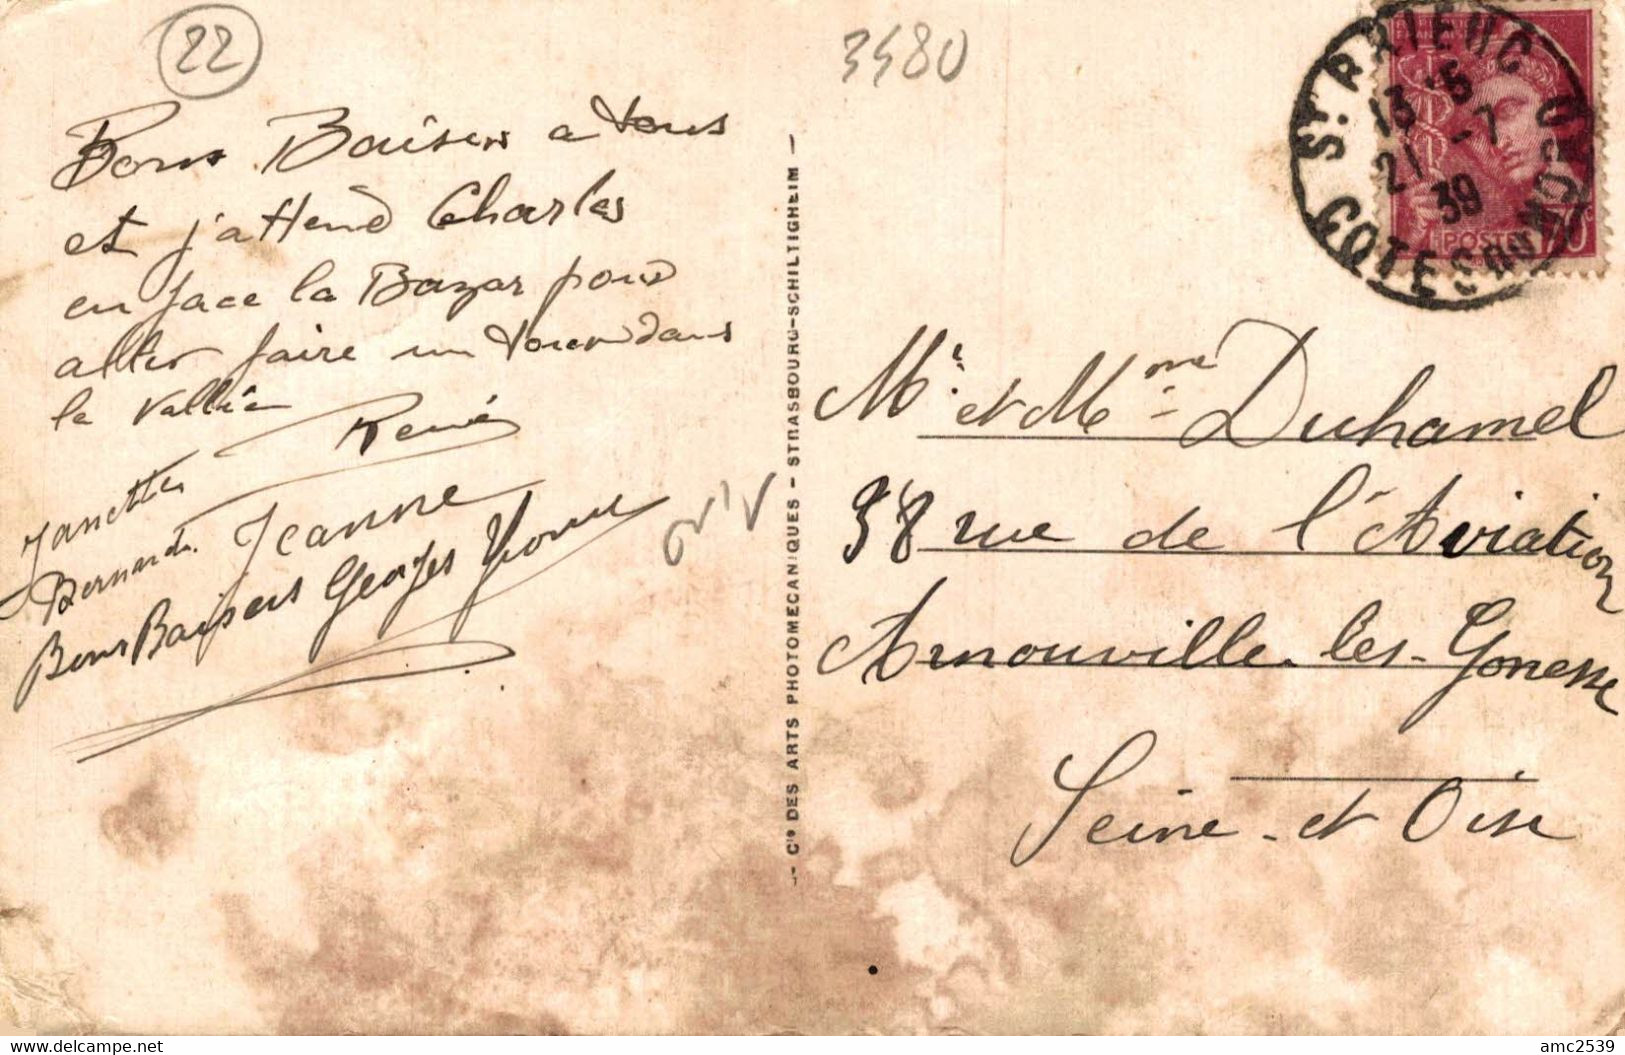 22
3580
Bons Baisers a tous
et j'attend Charles
en face la Bazar pour
aller faire un tour dans
la vallée
René
Janette
Bernard
Jeanne
Bons Baisers Georges Yvonne
Cie DES ARTS PHOTOMECANIQUES - STRASBOURG-SCHILTIGHEIM -
ST. BRIEUC
13 15
21 -7
39
COTES DU NORD
POSTES
Mr. et Mme Duhamel
38 rue de l'Aviation
Arnouville-les-Gonesse
Seine-et Oise
amc2539